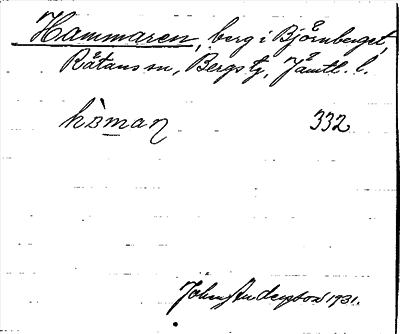 Hammaren, berg i Björnberget,
Råtans sn, Bergs tg, Jämtl. l.
hàman 332
John Andersson 1931.